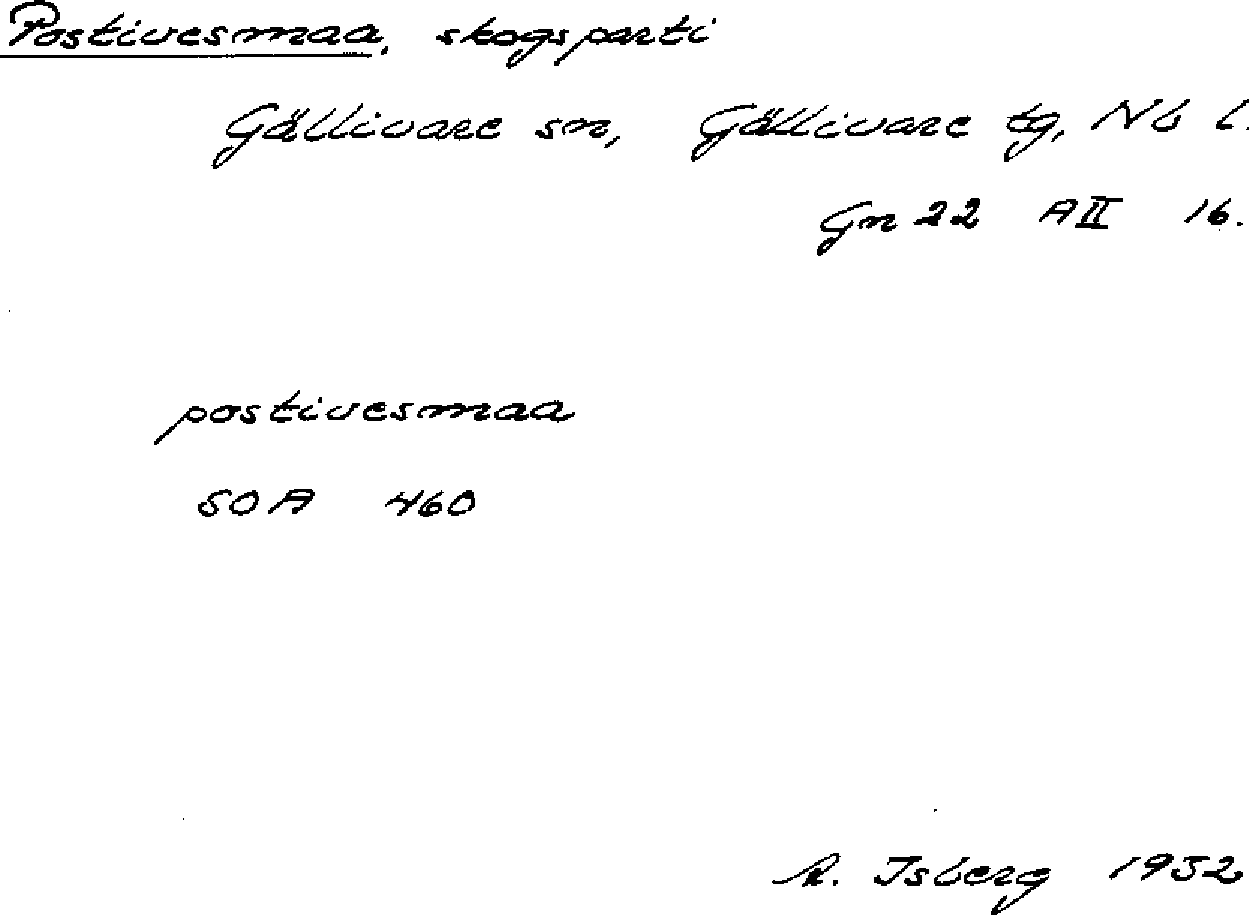 Postivesmaa, skogsparti
Gällivare sn, Gällivare tg, Nb l.
Gn 22 A II 16.
postivesmaa
SOA 460
R. Isberg 1952